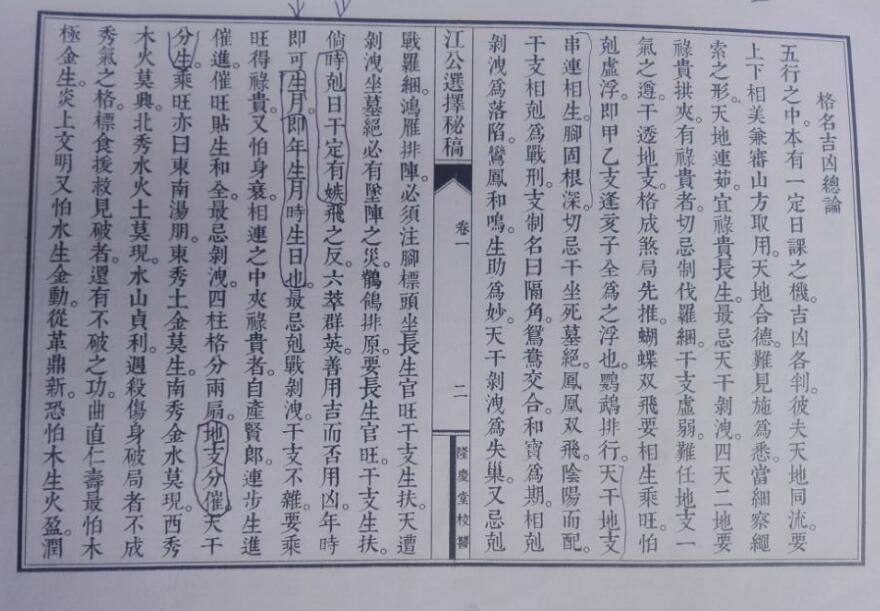 格名吉凶總論
五行之中。本有一定日課之機。吉凶各判。彼夫天地同流。要
上下相美兼審山方取用。天地合德。難見施爲悉。當細察繩
索之形。天地連茹。宜祿貴長生。最忌天干剝洩。四天二地要
祿貴拱夾。有祿貴者。切忌制伐羅綑。干支虛弱。難任地支一
氣之遵。干透地支。格成煞局先推。蝴蝶双飛。要相生乘旺。怕
剋虛浮。即甲乙支逢亥子全爲之浮也。鸚鵡排行。天干地支
串連相生。腳固根深。切忌干坐死墓絕。鳳凰双飛。陰陽而配。
干支相剋爲戰刑。支制名曰隔角。鴛鴦交合。和寶爲期。相剋
剝洩爲落陷。鸞鳳和鳴。生助爲妙。天干剝洩爲失巢。又忌剋
江公選擇秘稿
卷一
二
隆慶堂校讐
戰羅綑。鴻雁排陣。必須注腳標頭坐長生官旺干支生扶。天遭
剝洩坐墓絕必有墜陣之災。鶺鴒排原。要長生官旺。干支生扶。
倘時剋日干定有嫉飛之反。六萃群英。善用吉而否用凶。年時
即可生月。即年生月時生日也。最忌剋戰剝洩。干支不雜。要乘
旺得祿貴。又怕身衰。相連之中夾祿貴者。自產賢郎。連步生進
催進。催旺貼生和全。最忌剝洩。四柱格分兩扇。地支分催。天干
分生。乘旺亦曰東南湯朋。東秀土金莫生。南秀金水莫現。西秀
木火莫興。北秀水火土莫現。水山貞利。遇殺傷身破局者不成
秀氣之格。標食援救見破者。還有不破之功。曲直仁壽最怕木
極金生。炎上文明又怕水生金動。從革鼎新。恐怕木生火盈。潤